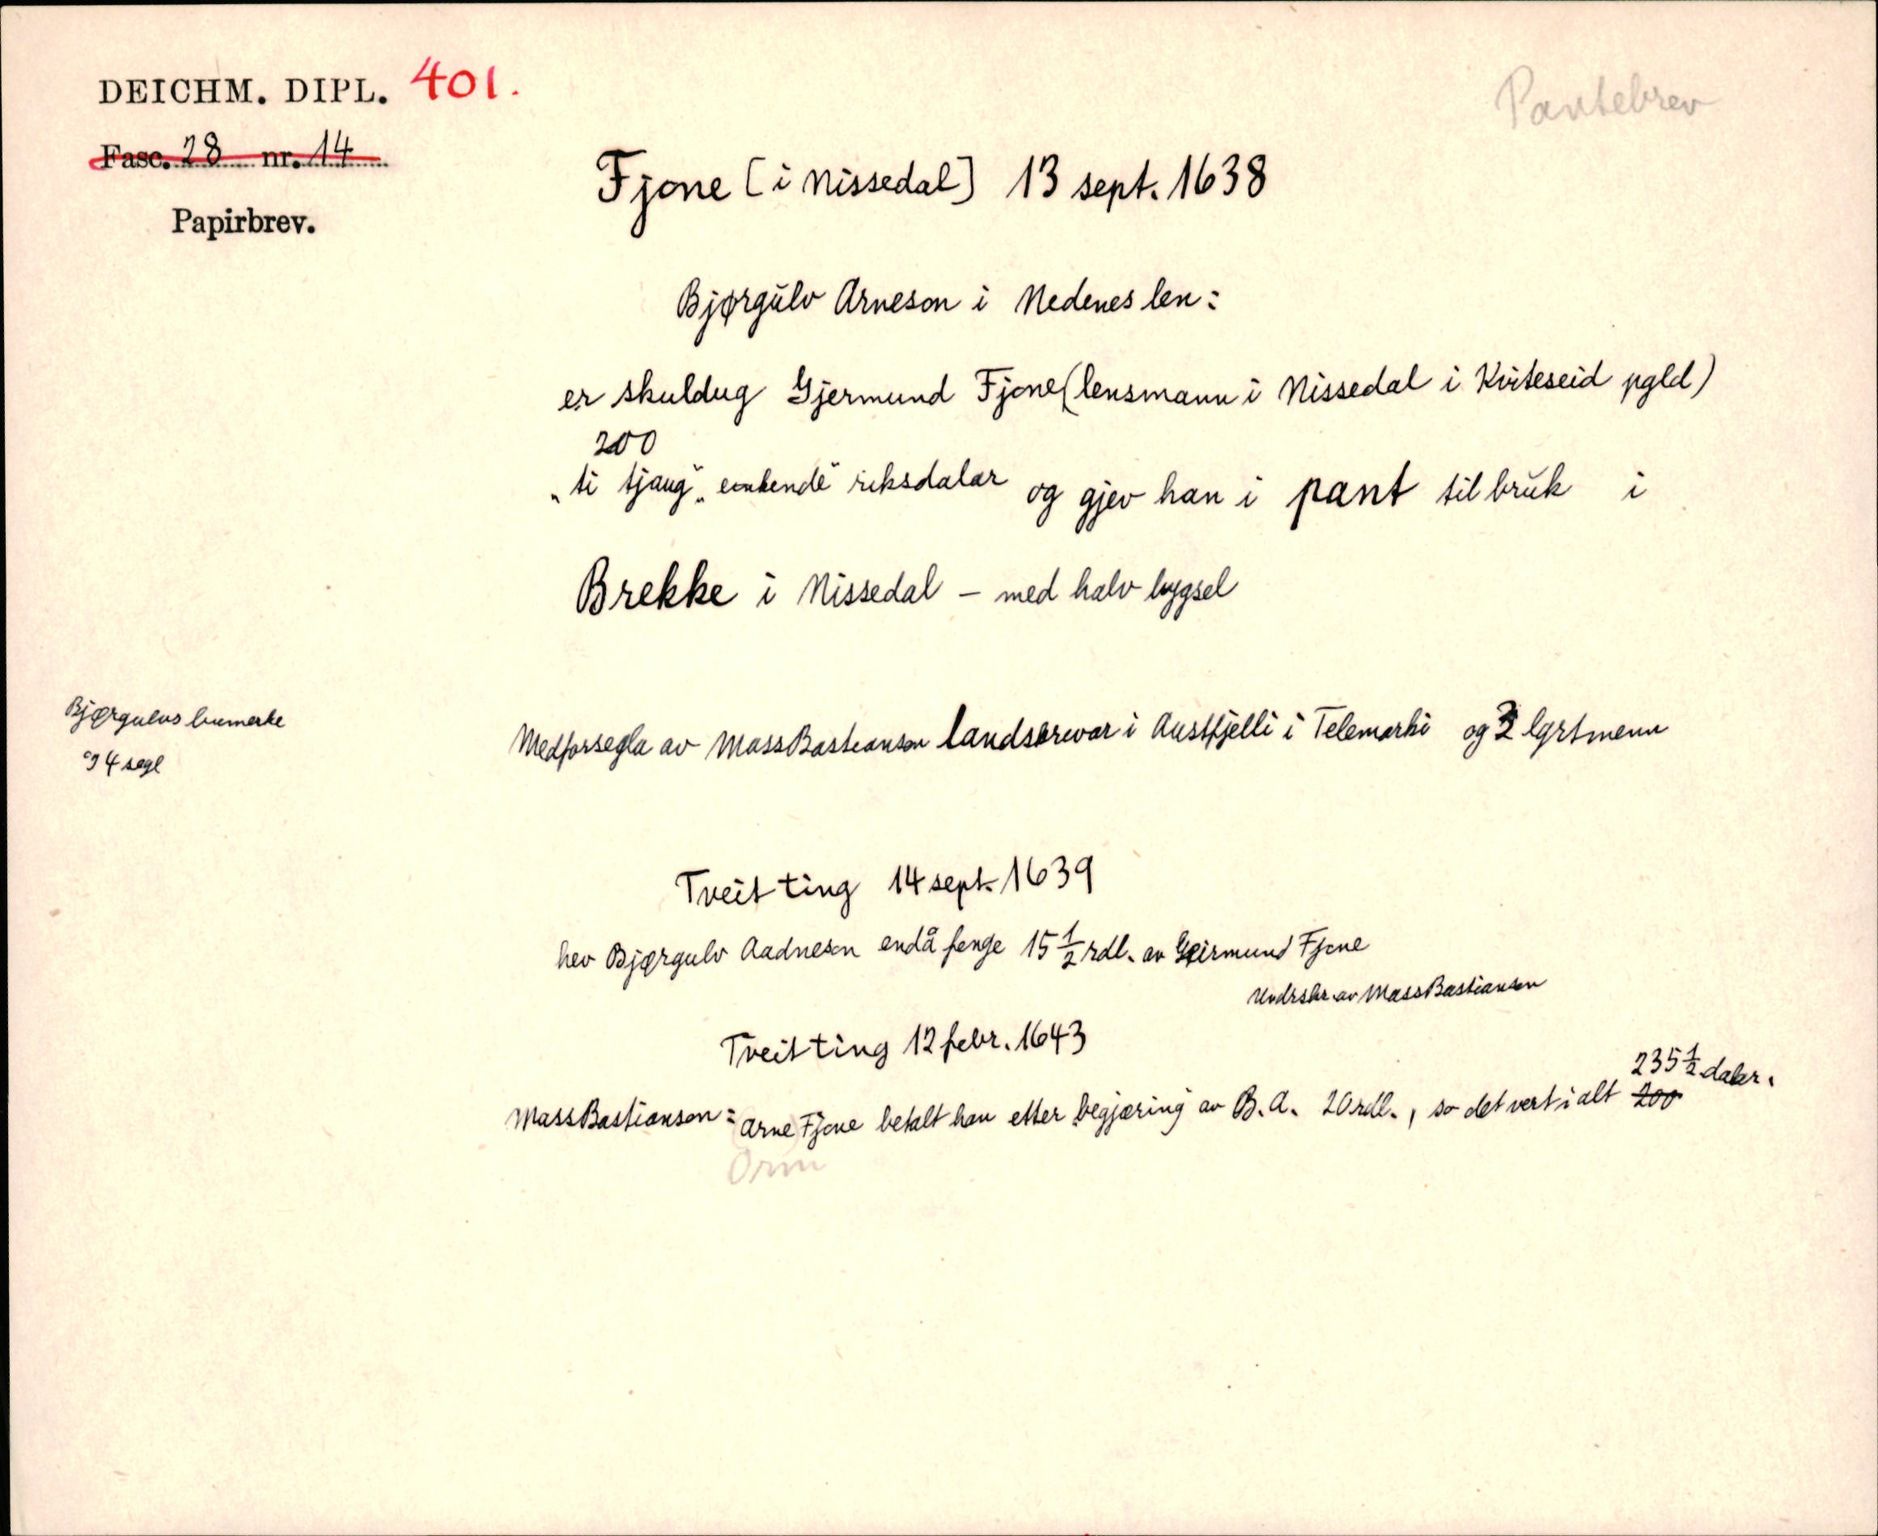 DEICHM. DIPL. 401.
Pantebrev
Fasc. 28 nr. 14
Papirbrev.
Fjone [i Nissedal] 13 sept. 1638
Bjørgulv Arneson i Nedenes len:
er skuldug Gjermund Fjone (lensmann i Nissedal i Kviteseid pgld)
200
„ti tjaug„ enkende riksdalar og gjev han i pant til bruk i
Brekke i Nissedal – med halv bygsel
Bjørgulvs bumerke
og 4 segl
Medforsegla av Mass Bastianson landskrivar i Austfjelli i Telemarki og 3 lgrtmenn
Tveit ting 14 sept. 1639
hev Bjørgulv Aadneson endå fenge 15 1/2 rdl. av Geirmund Fjone
Undrskr. av Mass Bastianson
Tveit ting 12 febr. 1643
235 1/2 dalar.
Mass Bastianson: Arne Fjone betalt han etter begjæring av B. A. 20 rdl., so det vert i alt 200
Orm